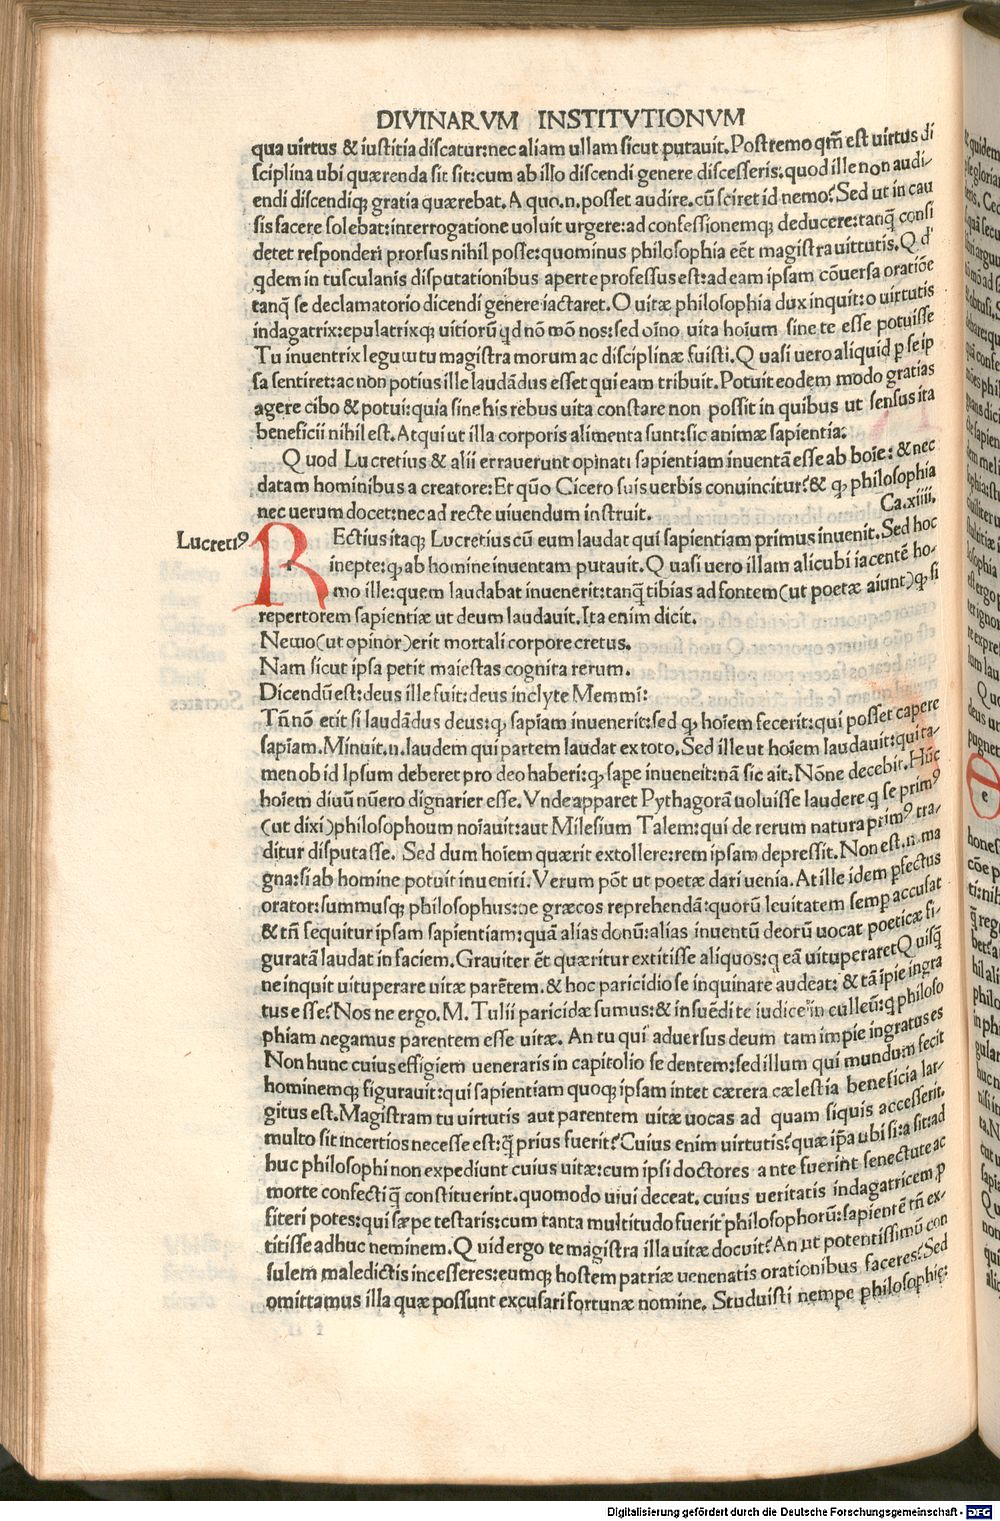 DIVINARVM INSTITVTIONVM
qua uirtus & iustitia discatur:nec aliam ullam sicut putauit.Postremo qm̄ est uirtus di
sciplina ubi quærenda sit sit:cum ab illo discendi genere discesseris:quod ille non audi-
endi discendiq; gratia quærebat.A quo.n.posset audire.cū sciret id nemo? Sed ut in cau
sis facere solebat:interrogatione uoluit urgere:ad confessionemq; deducere:tanq̄ consi
detet responderi prorsus nihil posse:quominus philosophia eēt magistra uittutis.Q d'
qdem in tusculanis disputationibus aperte professus est:ad eam ipsam cōuersa oratiōe
tanq̄ se declamatorio dicendi genere iactaret.O uitæ philosophia dux inquit:o uirtutis
indagatrix:epulatrixq; uitiorū qd nō mō nos:sed oīno uita hoīum sine te esse potuisse
Tu inuentrix legum tu magistra morum ac disciplinæ fuisti.Quasi uero aliquid p se ip
sa sentiret:ac non potius ille laudādus esset qui eam tribuit.Potuit eodem modo gratias
agere cibo & potui:quia sine his rebus uita constare non possit in quibus ut sensus ita
beneficii nihil est.Atqui ut illa corporis alimenta sunt:sic animæ sapientia.
Quod Lucretius & alii errauerunt opinati sapientiam inuentā esse ab hoīe: & nec
datam hominibus a creatore:Et quō Cicero suis uerbis conuincitur? & q; philosophia
nec uerum docet:nec ad recte uiuendum instruit. Ca.xiiii.
Lucreti9
REctius itaq; Lucretius cū eum laudat qui sapientiam primus inuenit.Sed hoc
inepte:q; ab homine inuentam putauit.Quasi uero illam alicubi iacentē ho-
mo ille:quem laudabat inuenerit:tanq̄ tibias ad fontem(ut poetæ aiunt)q; si
repertorem sapientiæ ut deum laudauit.Ita enim dicit.
Nemo(ut opinor)erit mortali corpore cretus.
Nam sicut ipsa petit maiestas cognita rerum.
Dicendū est:deus ille fuit:deus inclyte Memmi:
Tn̄ nō etit si laudādus deus:q; sapiam inuenerit:sed q; hoīem fecerit:qui posset capere
sapiam.Minuit.n.laudem qui partem laudat ex toto.Sed ille ut hoīem laudauit:qui ta-
men ob id Ipsum deberet pro deo haberi:q; sape inueneit:nā sic ait:Nōne decebit.Hūc
hoīem diuū nūero dignarier esse.Vnde apparet Pythagorā uoluisse laudere q se prim9
(ut dixi)philosophoum noīauit:aut Milesium Talem:qui de rerum natura prim9 tra-
ditur disputasse. Sed dum hoīem quærit extollere:rem ipsam depressit.Non est.n.ma
gna:si ab homine potuit inueniri.Verum pōt ut poetæ dari uenia.At ille idem pfectus
orator:summusq; philosophus:ne græcos reprehendā:quorū leuitatem semp accusat
& tn̄ sequitur ipsam sapientiam:quā alias donū:alias inuentū deorū uocat poeticæ fi-
guratā laudat in faciem.Grauiter ēt quæritur extitisse aliquos:q eā uituperaretQuisq̄
ne inquit uituperare uitæ parētem.& hoc paricidio se inquinare audeat: & tā ipie ingra
tus esse?Nos ne ergo.M.Tulii paricidæ sumus:& insuēdi te iudice in culleū:q philoso
phiam negamus parentem esse uitæ. An tu qui aduersus deum tam impie ingratus es
Non hunc cuius effigiem ueneraris in capitolio sedentem:sed illum qui mundum fecit
hominemq; figurauit:qui sapientiam quoq; ipsam intet cærera cælestia beneficia lar-
gitus est.Magistram tu uirtutis aut parentem uitæ uocas ad quam siquis accesserit.
multo sit incertios necesse est:q̄ prius fuerit?Cuius enim uirtutis?quæ ip̄a ubi si:a sit:ad
huc philosophi non expediunt cuius uitæ:cum ipsi doctores ante fuerint senectute ac
morte confecti q̄ constituerint.quomodo uiui deceat. cuius ueritatis indagatricem p
fiteri potes:qui sæpe testaris:cum tanta multitudo fuerit philosophorū:sapientē tn̄ ex-
titisse adhuc neminem.Quid ergo te magistra illa uitæ docuit?An ut potentissimū con
sulem maledictis incesseres:eumq; hostem patriæ uenenatis orationibus faceres?Sed
omittamus illa quæ possunt excusari fortunæ nomine. Studuisti nempe philosophię:
Digitalisierung gefördert durch die Deutsche Forschungsgemeinschaft - DFG